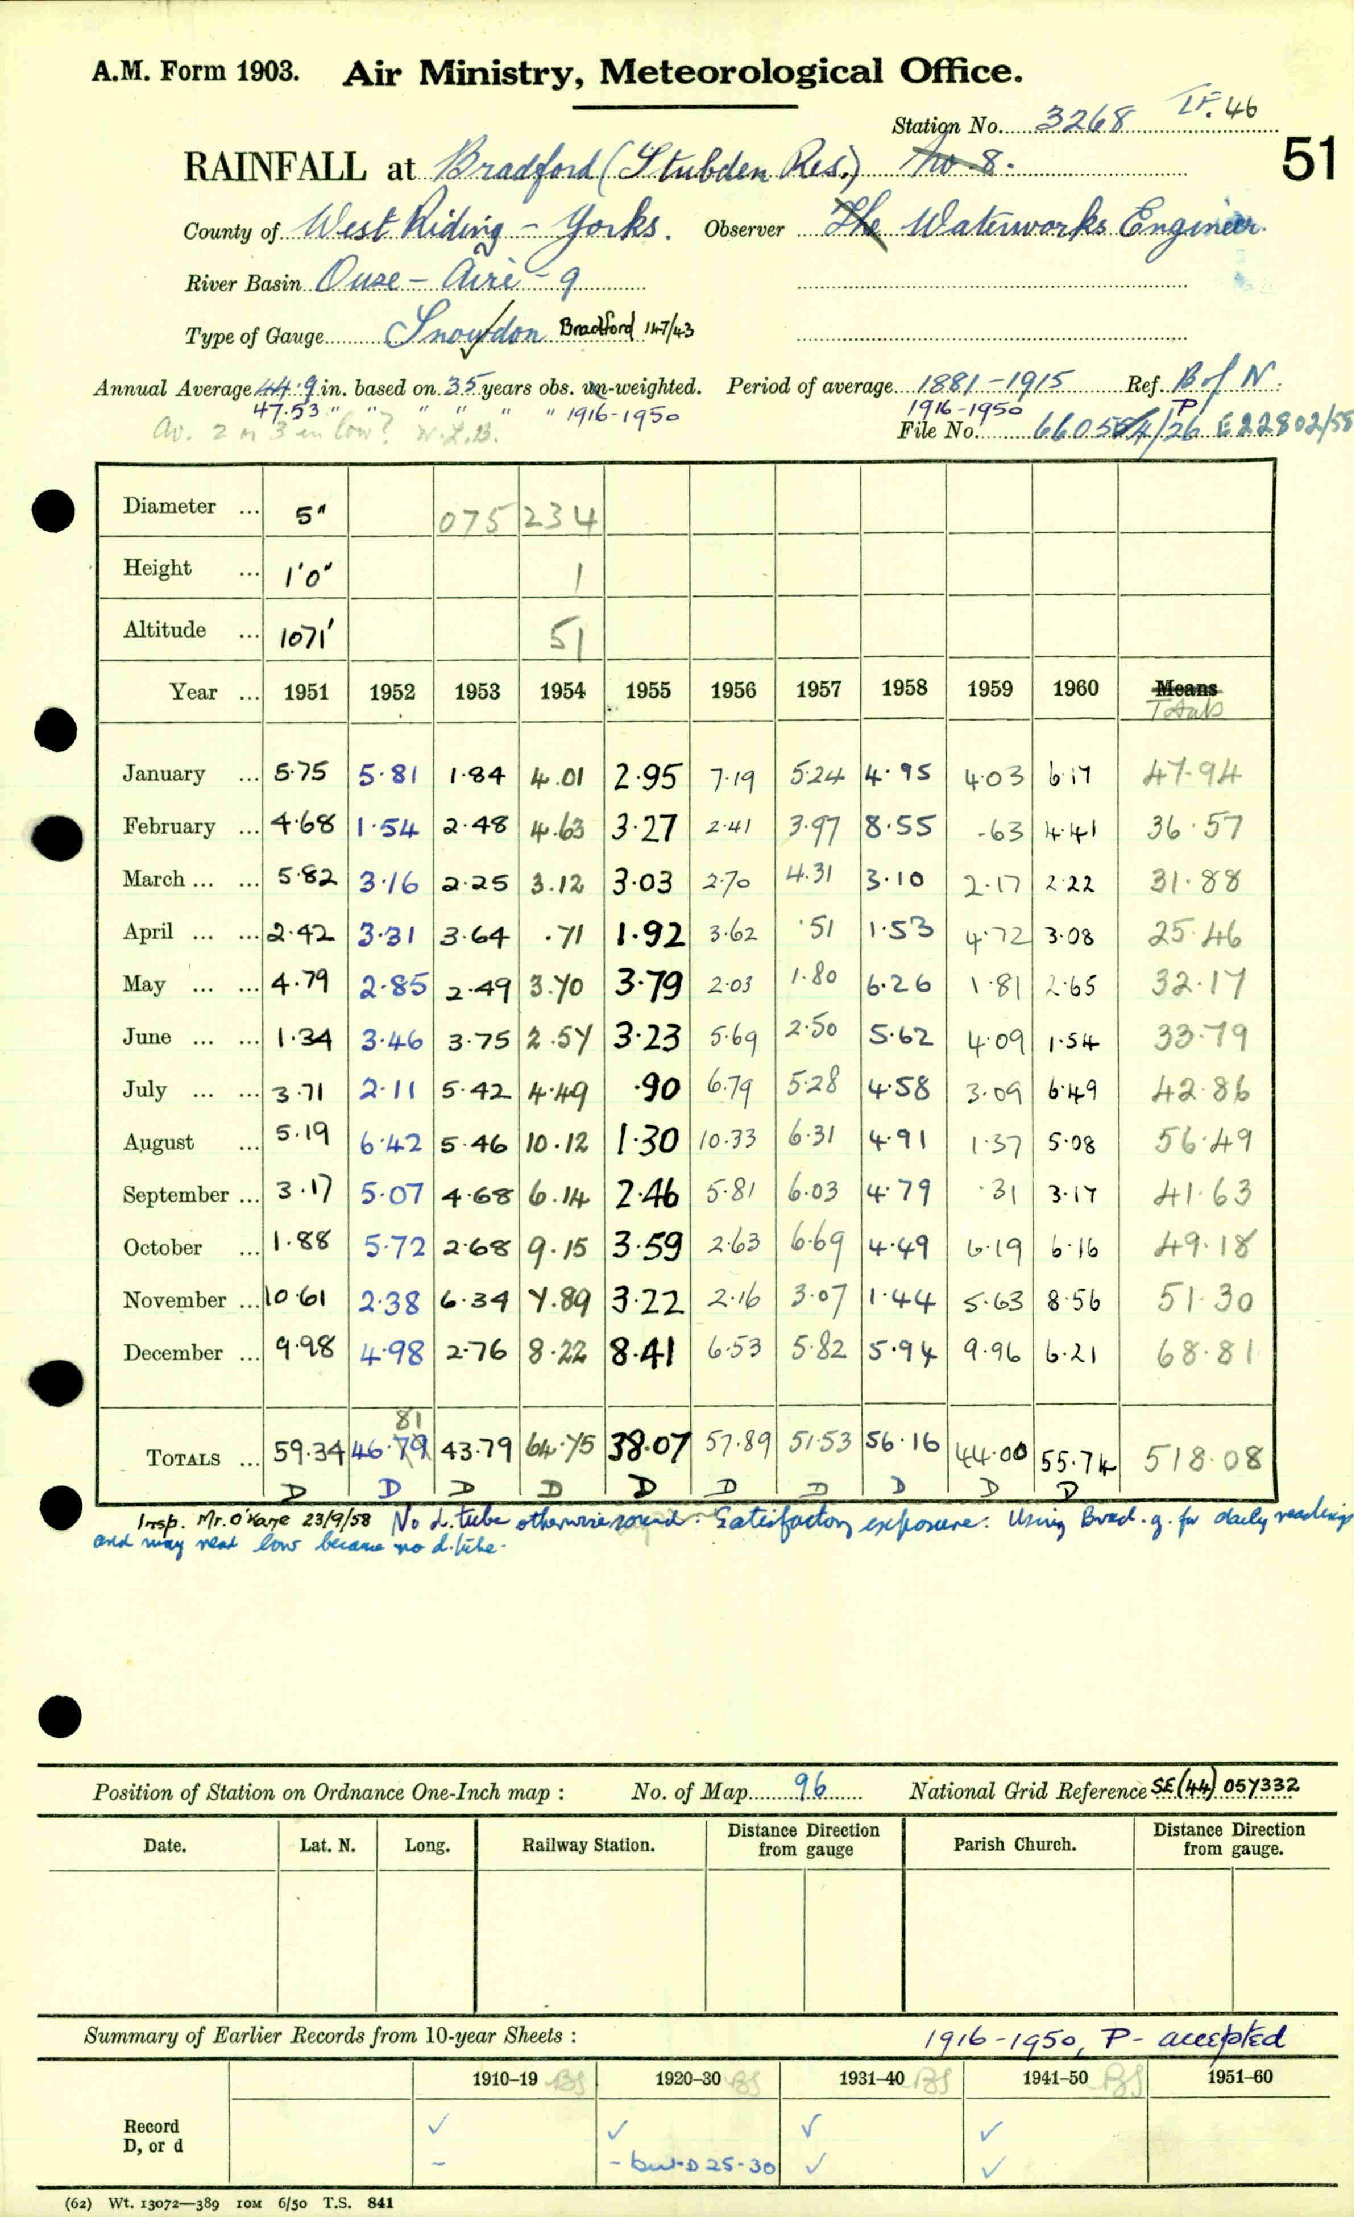 A.M. Form 1903. Air Ministry, Meteorological Office.
Station No. 3268 I.F. 46
51
RAINFALL at Bradford (Stubden Res.) No 8.
County of West Riding - Yorks. Observer The Waterworks Engineer.
River Basin Ouse - Aire - 9
Type of Gauge Snowdon Bradford 147/43
Annual Average 44.9 in. based on 35 years obs. un-weighted. Period of average 1881-1915 Ref. B of N.
47.53 " " " " " " 1916-1950 1916-1950 P
Av. 2 or 3 in low? W.L.B. File No. 66055 4/26 E22802/58
Diameter ... 5" 075 234
Height ... 1'0" 1
Altitude ... 1071' 51
Year ... 1951 1952 1953 1954 1955 1956 1957 1958 1959 1960 Means
Totals
January ... 5.75 5.81 1.84 4.01 2.95 7.19 5.24 4.95 4.03 6.17 47.94
February ... 4.68 1.54 2.48 4.63 3.27 2.41 3.97 8.55 .63 4.41 36.57
March ... ... 5.82 3.16 2.25 3.12 3.03 2.70 4.31 3.10 2.17 2.22 31.88
April ... ... 2.42 3.31 3.64 .71 1.92 3.62 .51 1.53 4.72 3.08 25.46
May ... ... 4.79 2.85 2.49 3.70 3.79 2.03 1.80 6.26 1.81 2.65 32.17
June ... ... 1.34 3.46 3.75 2.57 3.23 5.69 2.50 5.62 4.09 1.54 33.79
July ... ... 3.71 2.11 5.42 4.49 .90 6.79 5.28 4.58 3.09 6.49 42.86
August ... 5.19 6.42 5.46 10.12 1.30 10.33 6.31 4.91 1.37 5.08 56.49
September ... 3.17 5.07 4.68 6.14 2.46 5.81 6.03 4.79 .31 3.17 41.63
October ... 1.88 5.72 2.68 9.15 3.59 2.63 6.69 4.49 6.19 6.16 49.18
November ... 10.61 2.38 6.34 7.89 3.22 2.16 3.07 1.44 5.63 8.56 51.30
December ... 9.98 4.98 2.76 8.22 8.41 6.53 5.82 5.94 9.96 6.21 68.81
81
TOTALS ... 59.34 46.79 43.79 64.75 38.07 57.89 51.53 56.16 44.00 55.74 518.08
D D D D D D D D D D
Insp. Mr. O'Kane 23/9/58 No d. tube otherwise sound. Satisfactory exposure. Using Brad. g. for daily readings
and may read low because no d. tube.
Position of Station on Ordnance One-Inch map : No. of Map 96 National Grid Reference SE (44) 057332
Date. Lat. N. Long. Railway Station. Distance Direction from gauge Parish Church. Distance Direction from gauge.
Summary of Earlier Records from 10-year Sheets : 1916-1950, P - accepted
1910–19 BS 1920–30 BS 1931–40 BS 1941–50 BS 1951–60
Record ✓ ✓ ✓ ✓
D, or d - - but D 25-30 ✓ ✓
(62) Wt. 13072—389 10M 6/50 T.S. 841